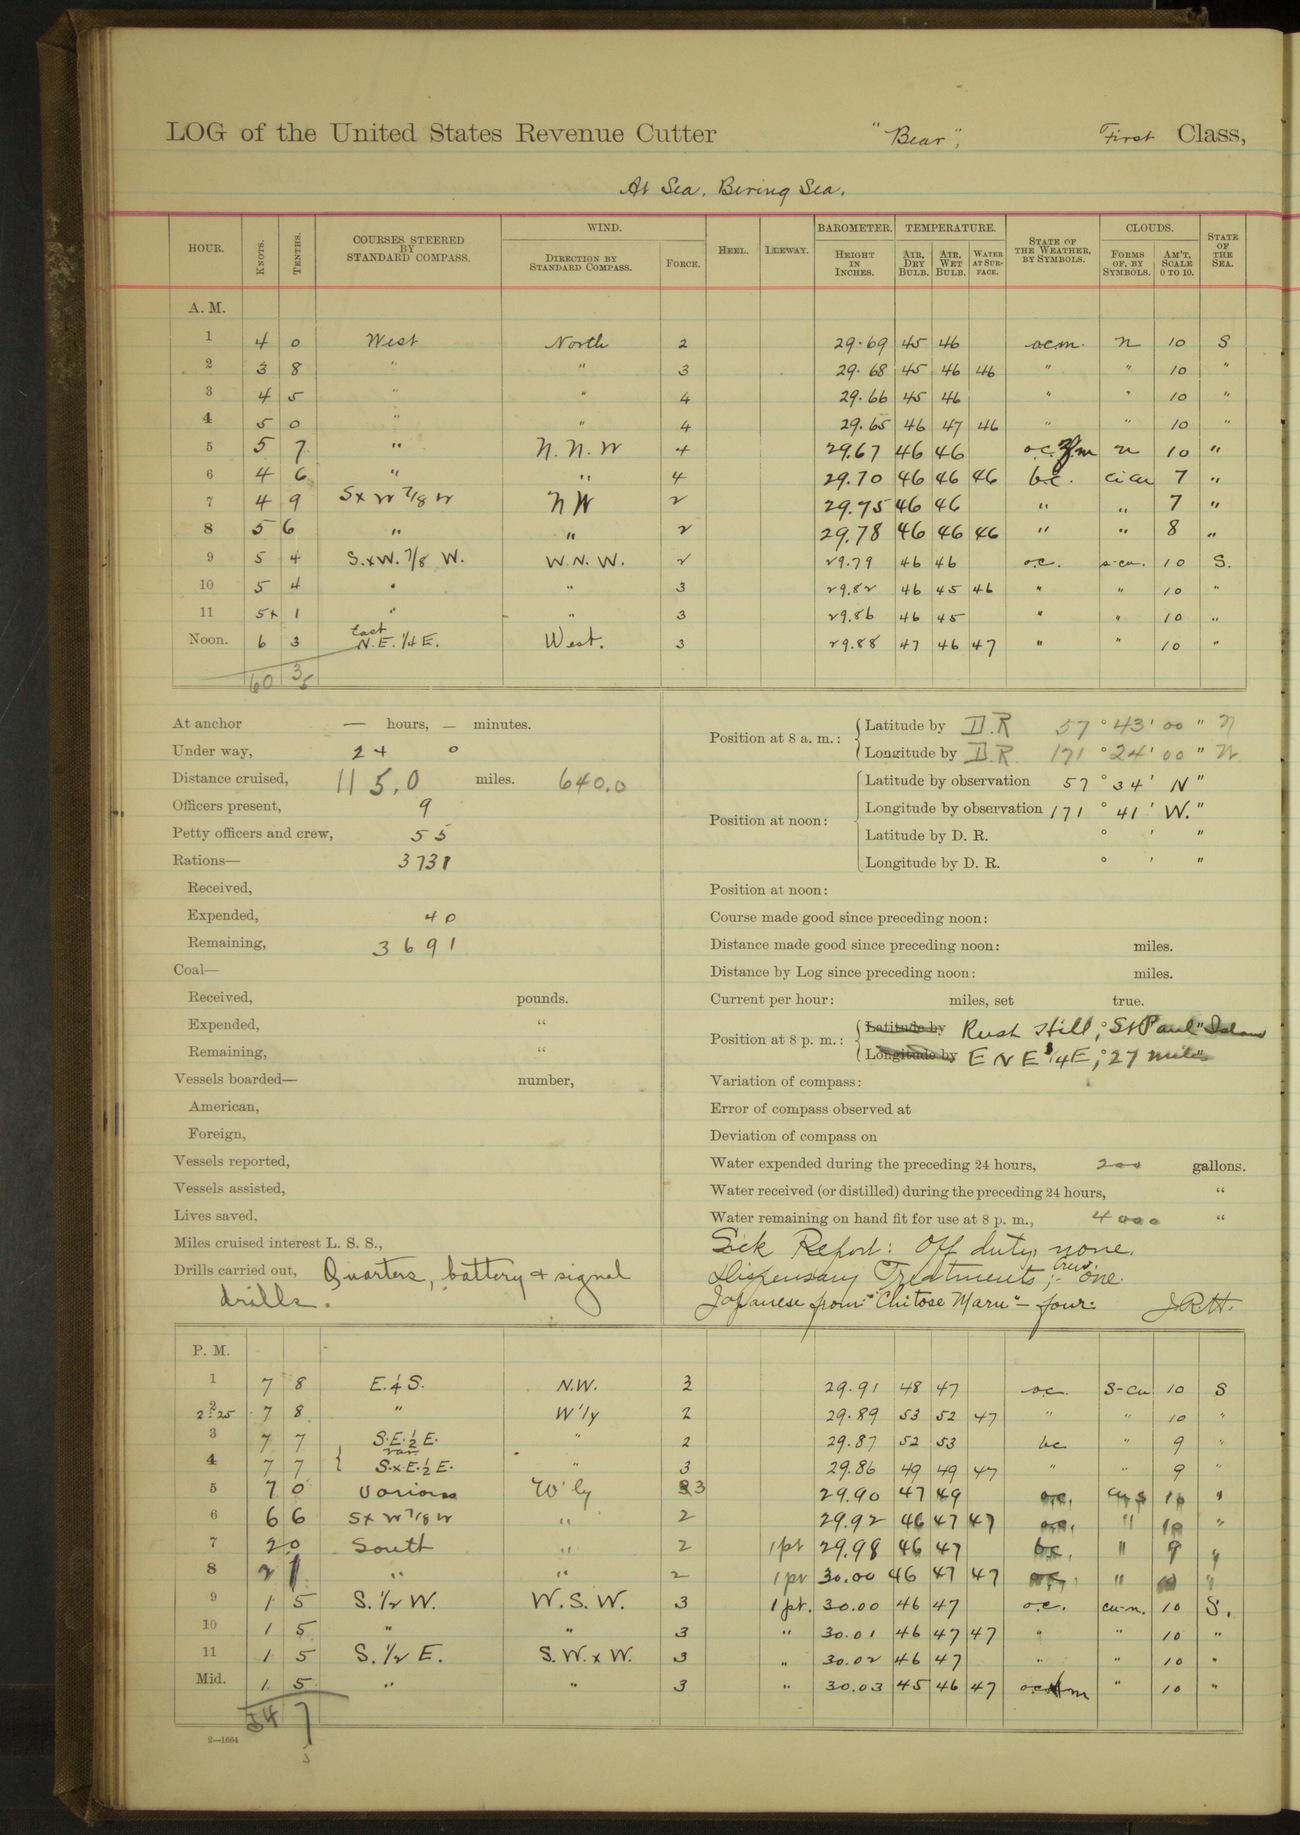 LOG of the United States Revenue Cutter "Bear", First Class,
At Sea, Bering Sea.
HOUR. KNOTS. TENTHS. COURSES STEERED BY STANDARD COMPASS. WIND. DIRECTION BY STANDARD COMPASS. FORCE. HEEL. LEEWAY. BAROMETER. HEIGHT IN INCHES. TEMPERATURE. AIR, DRY BULB. AIR, WET BULB. WATER AT SURFACE. STATE OF THE WEATHER, BY SYMBOLS. CLOUDS. FORMS OF, BY SYMBOLS. AM'T, SCALE 0 TO 10. STATE OF THE SEA.
A. M.
1 4 0 West North 2 29.69 45 46 ocm. n 10 S
2 3 8 " " 3 29.68 45 46 46 " " 10 "
3 4 5 " " 4 29.66 45 46 " " 10 "
4 5 0 " " 4 29.65 46 47 46 " " 10 "
5 5 7 " N.N.W 4 29.67 46 46 o.c. m n 10 "
6 4 6 " " 4 29.70 46 46 46 b.c. ci cu 7 "
7 4 9 S x W 7/8 W NW 2 29.75 46 46 " " 7 "
8 5 6 " " 2 29.78 46 46 46 " " 8 "
9 5 4 S.xW. 7/8 W. W.N.W. 2 29.79 46 46 o.c. s-cu. 10 S.
10 5 4 " " 3 29.82 46 45 46 " " 10 "
11 5x 1 " " 3 29.86 46 45 " " 10 "
Noon. 6 3 East N.E. 1/4 E. West. 3 29.88 47 46 47 " " 10 "
60 3
At anchor — hours, — minutes.
Under way, 24 0
Distance cruised, 115.0 miles. 640.0
Officers present, 9
Petty officers and crew, 55
Rations— 3731
Received,
Expended, 40
Remaining, 3691
Coal—
Received, pounds.
Expended, "
Remaining, "
Vessels boarded— number,
American,
Foreign,
Vessels reported,
Vessels assisted,
Lives saved,
Miles cruised interest L. S. S.,
Drills carried out, Quarters, battery & signal
drills.
Position at 8 a. m.: Latitude by D.R 57 ° 43 ' 00 " N
Longitude by D.R. 171 ° 24 ' 00 " W
Position at noon: Latitude by observation 57 ° 34 ' N "
Longitude by observation 171 ° 41 ' W. "
Latitude by D. R. ° ' "
Longitude by D. R. ° ' "
Position at noon:
Course made good since preceding noon:
Distance made good since preceding noon: miles.
Distance by Log since preceding noon: miles.
Current per hour: miles, set true.
Position at 8 p. m.: Latitude by Rush Hill, St Paul Island
Longitude by E N E 3/4 E, 27 miles
Variation of compass:
Error of compass observed at
Deviation of compass on
Water expended during the preceding 24 hours, 200 gallons.
Water received (or distilled) during the preceding 24 hours, "
Water remaining on hand fit for use at 8 p. m., 4000 "
Sick Report: Off duty, none.
Dispensary Treatments; crew, one.
Japanese from "Chitose Maru" – four. J.R.H.
P. M.
1 7 8 E. 1/4 S. N.W. 3 29.91 48 47 o.c. S-cu 10 S
2 2:25 7 8 " W'ly 2 29.89 53 52 47 " " 10 "
3 7 7 S.E. 1/2 E. " 2 29.87 52 53 bc " 9 "
4 7 7 var S.x E. 1/2 E. " 3 29.86 49 49 47 " " 9 "
5 7 0 various W'ly 3 29.90 47 49 o.c. cu s 10 "
6 6 6 S x W 7/8 W " 2 29.92 46 47 47 o.c. " 10 "
7 2 0 South " 2 1 pt 29.98 46 47 bc. " 9 "
8 2 1 " " 2 1 pt 30.00 46 47 47 " "
9 1 5 S. 1/2 W. W.S.W. 3 1 pt. 30.00 46 47 o.c. cu-n. 10 S.
10 1 5 " " 3 " 30.01 46 47 47 " " 10 "
11 1 5 S. 1/2 E. S.W.x W. 3 " 30.02 46 47 " " 10 "
Mid. 1 5 " " 3 " 30.03 45 46 47 oc m " 10 "
54 7
2—1664